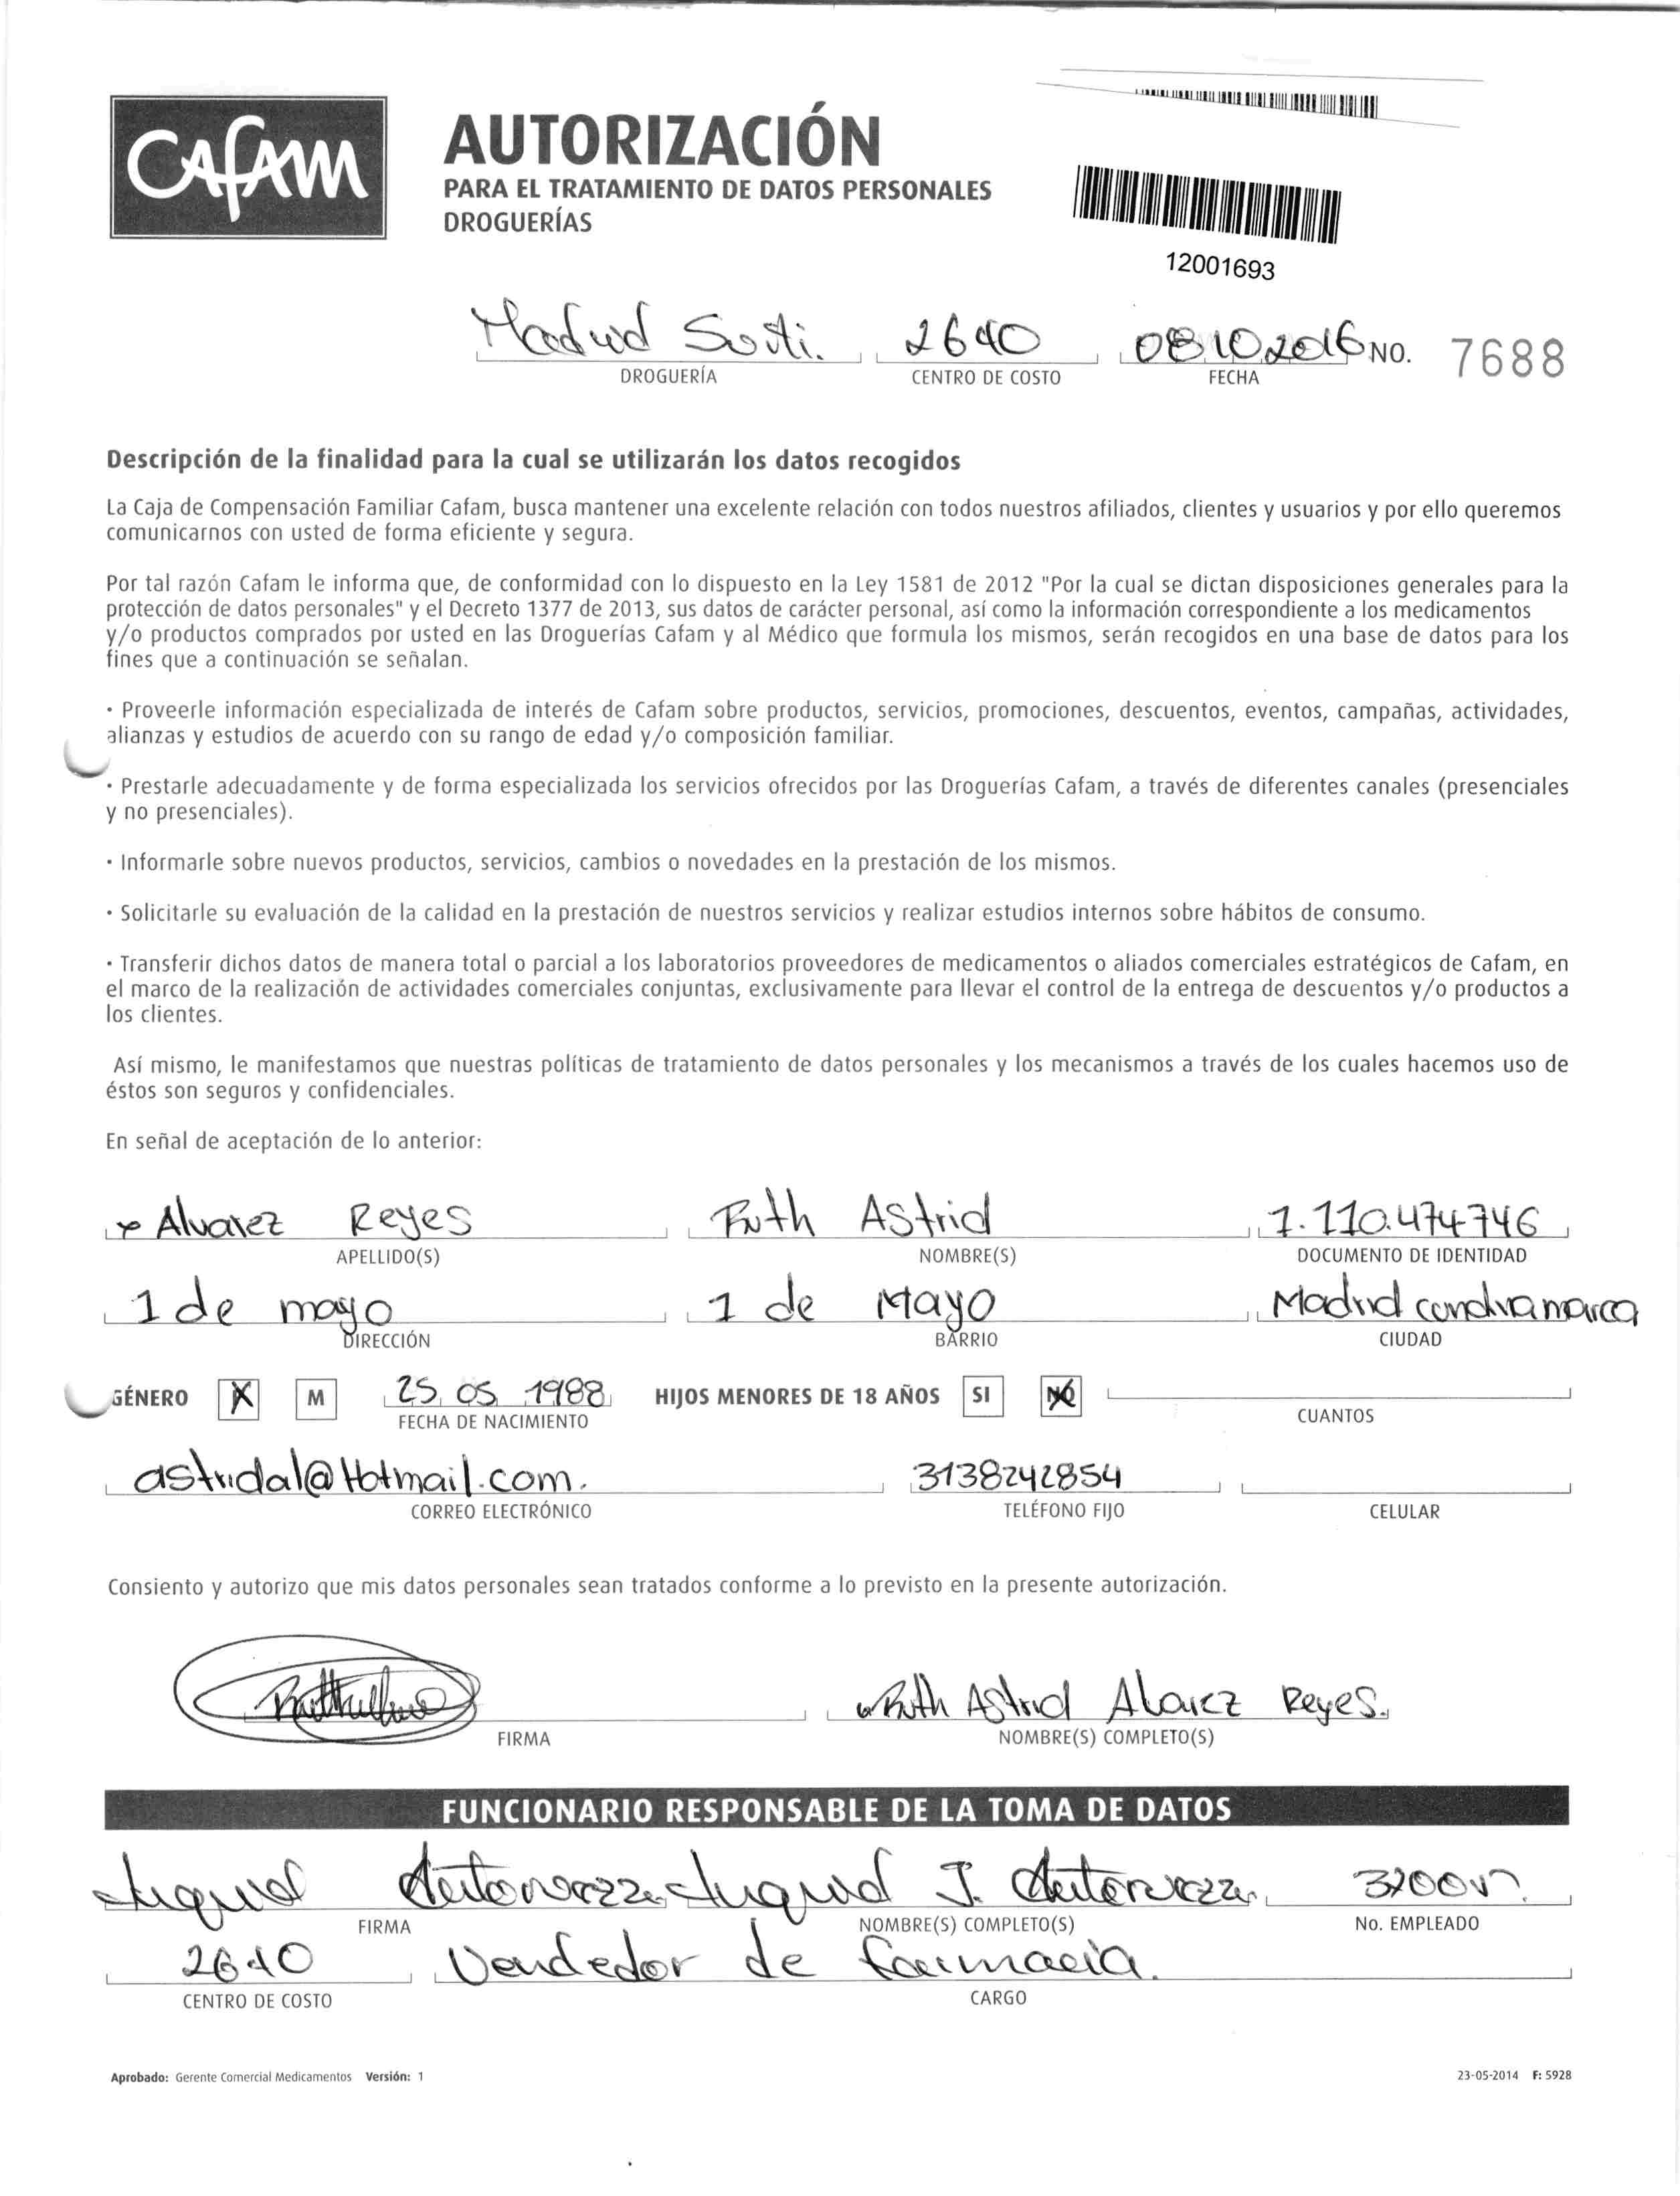 CAFAM
AUTORIZACIÓN
PARA EL TRATAMIENTO DE DATOS PERSONALES
DROGUERÍAS
12001693
Madrid 2640 08 10 2016 NO. 7688
DROGUERÍA CENTRO DE COSTO FECHA
Descripción de la finalidad para la cual se utilizarán los datos recogidos
La Caja de Compensación Familiar Cafam, busca mantener una excelente relación con todos nuestros afiliados, clientes y usuarios y por ello queremos
comunicarnos con usted de forma eficiente y segura.
Por tal razón Cafam le informa que, de conformidad con lo dispuesto en la Ley 1581 de 2012 "Por la cual se dictan disposiciones generales para la
protección de datos personales" y el Decreto 1377 de 2013, sus datos de carácter personal, así como la información correspondiente a los medicamentos
y/o productos comprados por usted en las Droguerías Cafam y al Médico que formula los mismos, serán recogidos en una base de datos para los
fines que a continuación se señalan.
· Proveerle información especializada de interés de Cafam sobre productos, servicios, promociones, descuentos, eventos, campañas, actividades,
alianzas y estudios de acuerdo con su rango de edad y/o composición familiar.
· Prestarle adecuadamente y de forma especializada los servicios ofrecidos por las Droguerías Cafam, a través de diferentes canales (presenciales
y no presenciales).
· Informarle sobre nuevos productos, servicios, cambios o novedades en la prestación de los mismos.
· Solicitarle su evaluación de la calidad en la prestación de nuestros servicios y realizar estudios internos sobre hábitos de consumo.
· Transferir dichos datos de manera total o parcial a los laboratorios proveedores de medicamentos o aliados comerciales estratégicos de Cafam, en
el marco de la realización de actividades comerciales conjuntas, exclusivamente para llevar el control de la entrega de descuentos y/o productos a
los clientes.
Así mismo, le manifestamos que nuestras políticas de tratamiento de datos personales y los mecanismos a través de los cuales hacemos uso de
éstos son seguros y confidenciales.
En señal de aceptación de lo anterior:
Alvarez Reyes Ruth Astrid 1.110.474.746
APELLIDO(S) NOMBRE(S) DOCUMENTO DE IDENTIDAD
1 de mayo 1 de Mayo Madrid cundinamarca
DIRECCIÓN BARRIO CIUDAD
GÉNERO X M 25 05 1988 HIJOS MENORES DE 18 AÑOS SI NO
FECHA DE NACIMIENTO CUANTOS
astridal@Hotmail.com. 3138242854
CORREO ELECTRÓNICO TELÉFONO FIJO CELULAR
Consiento y autorizo que mis datos personales sean tratados conforme a lo previsto en la presente autorización.
Ruth Astrid Alvarez Reyes.
FIRMA NOMBRE(S) COMPLETO(S)
FUNCIONARIO RESPONSABLE DE LA TOMA DE DATOS
J.
FIRMA NOMBRE(S) COMPLETO(S) No. EMPLEADO
2640 Vendedor de farmacia.
CENTRO DE COSTO CARGO
Aprobado: Gerente Comercial Medicamentos Versión: 1 23-05-2014 F: 5928